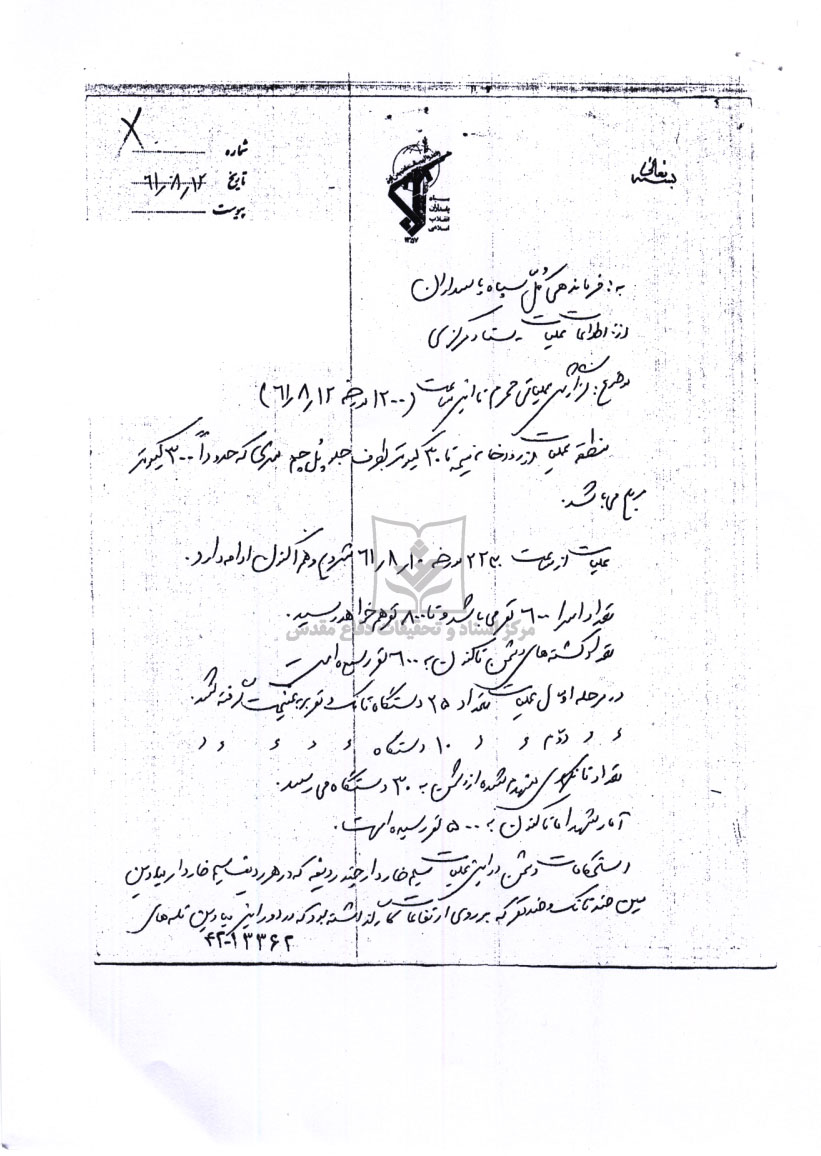 بسمه تعالی
شماره
تاریخ ۶۱٫۸٫۱۲
پیوست
سپاه پاسداران انقلاب اسلامی
۱۳۵۷
به: فرماندهی کل سپاه پاسداران
از: اطلاعات عملیات ستاد مرکزی
موضوع: گزارش عملیاتی محرم تا این ساعت (۱۲۰۰ مورخه ۶۱٫۸٫۱۲)
منطقه عملیات از رودخانه میمه تا ۳۰ کیلومتر بطرف جلو پل چم سری که حدوداً ۳۰۰ کیلومتر
مربع می باشد.
عملیات از ساعت ۲۲۳۰ مورخه ۶۱٫۸٫۱۰ شروع و هم اکنون ادامه دارد.
تعداد اسرا ۶۰۰ نفر می باشد و تا ۸۰۰ نفر هم خواهد رسید.
مرکز اسناد و تحقیقات دفاع مقدس
تعداد کشته های دشمن تاکنون به ۶۰۰ نفر رسیده است
در مرحله اول عملیات تعداد ۲۵ دستگاه تانک و نفربر به غنیمت گرفته شد.
〃 〃 دوم 〃 〃 ۱۰ دستگاه 〃 〃 〃 〃 〃
تعداد تانکهای منهدم شده از دشمن به ۳۰ دستگاه می رسد.
آمار شهدا ما تاکنون به ۵۰۰ نفر رسیده است.
استحکامات دشمن در این عملیات سیم خاردار چند ردیفه که در هر ردیف سیم خاردار میادین
مین چند تانک و چند نفر که بر روی ارتفاعات کار گذاشته بود که در دور این میادین تله های
۴۲-۱۳۳۶۲